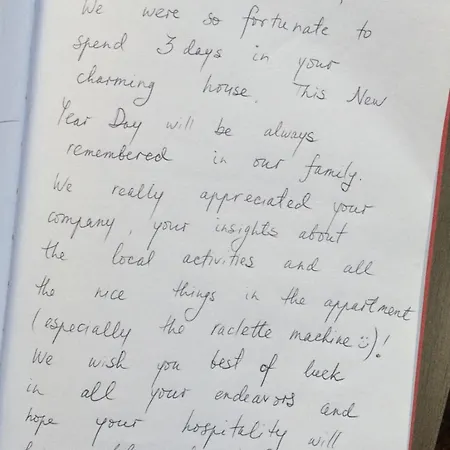 We were so fortunate to
spend 3 days in your
charming house. This New
Year Day will be always
remembered in our family.
We really appreciated your
company, your insights about
the local activities and all
the nice things in the appartment
(especially the raclette machine :))!
We wish you best of luck
in all your endeavors and
hope your hospitality will